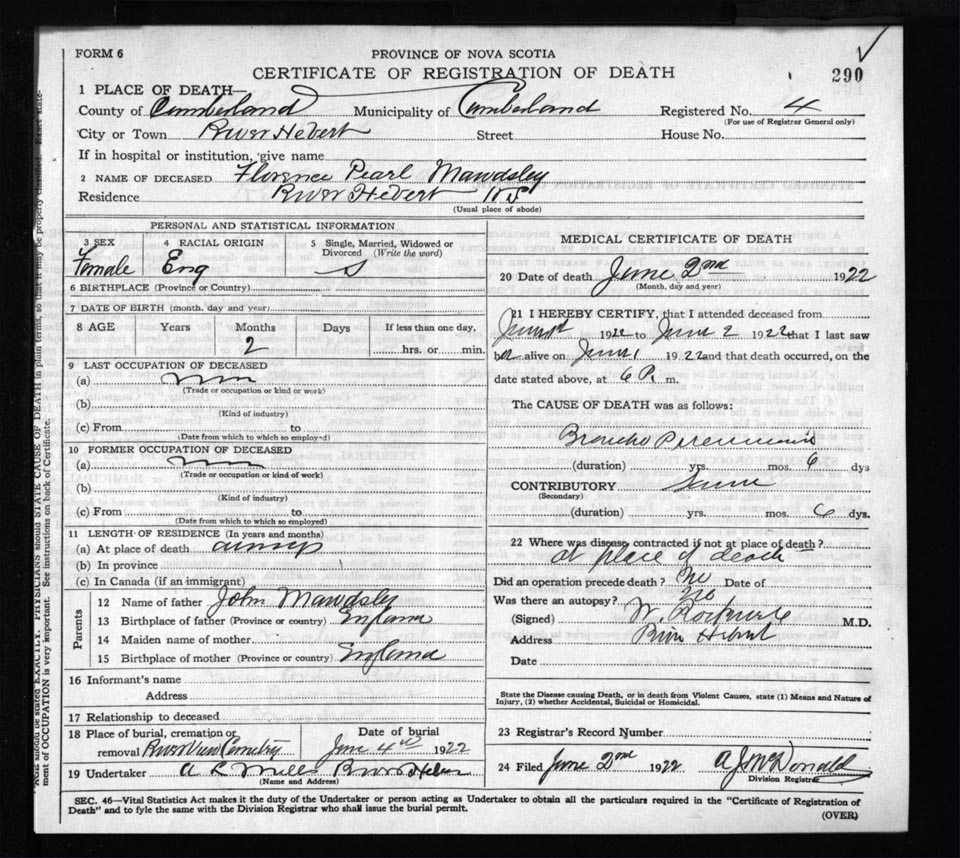 FORM 6
PROVINCE OF NOVA SCOTIA
CERTIFICATE OF REGISTRATION OF DEATH
290
1 PLACE OF DEATH
County of Cumberland Municipality of Cumberland Registered No. 4
(For use of Registrar General only)
City or Town River Hebert Street House No.
If in hospital or institution, give name
2 NAME OF DECEASED Florence Pearl Mawdsley
Residence River Hebert NS
(Usual place of abode)
PERSONAL AND STATISTICAL INFORMATION
3 SEX 4 RACIAL ORIGIN 5 Single, Married, Widowed or Divorced (Write the word)
Female Eng S
6 BIRTHPLACE (Province or Country)
7 DATE OF BIRTH (month, day and year)
8 AGE Years Months Days If less than one day,
2 hrs. or min.
9 LAST OCCUPATION OF DECEASED
(a)
(Trade or occupation or kind or work)
(b)
(Kind of industry)
(c) From to
(Date from which to which so employed)
10 FORMER OCCUPATION OF DECEASED
(a)
(Trade or occupation or kind of work)
(b)
(Kind of industry)
(c) From to
(Date from which to which so employed)
11 LENGTH OF RESIDENCE (In years and months)
(a) At place of death always
(b) In province
(c) In Canada (if an immigrant)
Parents
12 Name of father John Mawdsley
13 Birthplace of father (Province or country) England
14 Maiden name of mother
15 Birthplace of mother (Province or country) England
16 Informant's name
Address
17 Relationship to deceased
18 Place of burial, cremation or removal River View Cemetry
Date of burial June 4th 1922
19 Undertaker A L Mills River Hebert
(Name and Address)
MEDICAL CERTIFICATE OF DEATH
20 Date of death June 2nd 1922
(Month, day and year)
21 I HEREBY CERTIFY, that I attended deceased from
June 1st 1922 to June 2 1922 that I last saw
her alive on June 1 1922 and that death occurred, on the
date stated above, at 6 P. m.
The CAUSE OF DEATH was as follows:
Broncho Pneumonia
(duration) yrs. mos. 6 dys
CONTRIBUTORY Same
(Secondary)
(duration) yrs. mos. 6 dys.
22 Where was disease contracted if not at place of death?
at place of death
Did an operation precede death? no Date of
Was there an autopsy? no
(Signed) W. M.D.
Address River Hebert
Date
State the Disease causing Death, or in death from Violent Causes, state (1) Means and Nature of
Injury, (2) whether Accidental, Suicidal or Homicidal.
23 Registrar's Record Number
24 Filed June 2nd 1922 A J McDonald
Division Registrar
SEC. 46—Vital Statistics Act makes it the duty of the Undertaker or person acting as Undertaker to obtain all the particulars required in the "Certificate of Registration of
Death" and to fyle the same with the Division Registrar who shall issue the burial permit.
(OVER)